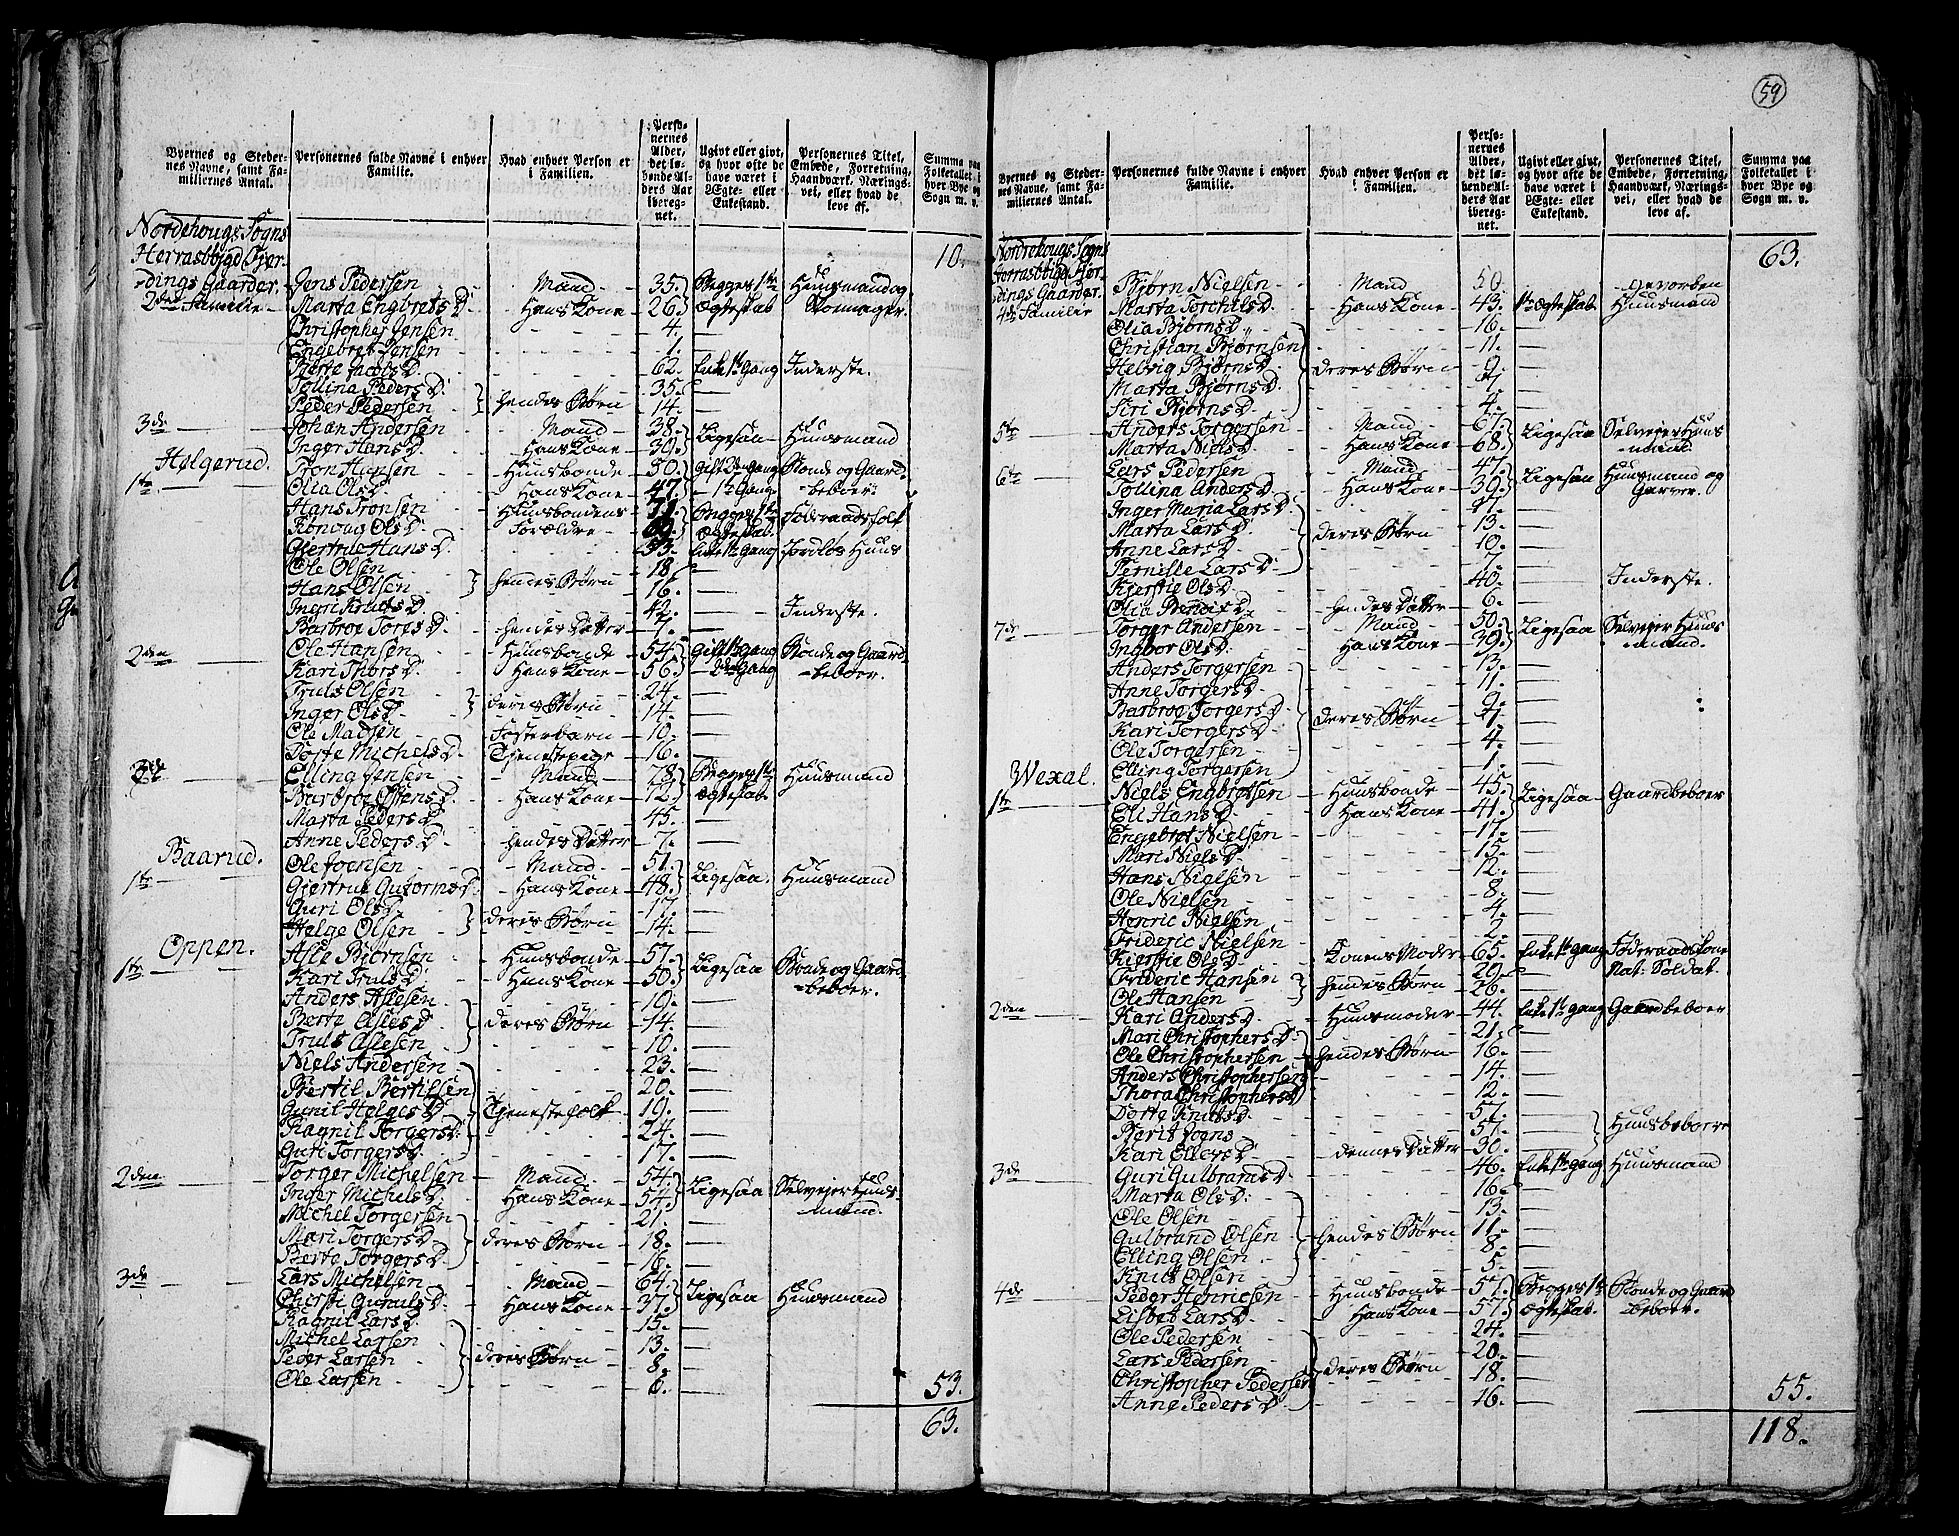 59
Byernes og Stedernes Navne, samt Familiernes Antal.
Personernes fulde Navne i enhver Familie.
Hvad enhver Person er i Familien.
Personernes Alder, det løbende Alders Aar iberegnet.
Ugivt eller givt, og hvor ofte de have været i Ægte- eller Enkestand.
Personernes Titel, Embede, Forretning, Haandværk, Næringsvei, eller hvad de leve af.
Summa paa Folketallet i hver Bye og Sogn m. v.
Nordehougs Sogns
Herrasbygd Fjer-
dings Gaarder. 10.
2den Familie - Jens Pedersen - Mand - 35. Begges 1te Huusmand og
Marta Engbrets D. - Hans Kone - 26. Ægteskab Skomager.
Christopher Jensen - 4. -
Engebret Jensen - 1. -
Berte Jacobs D. - 62. Enke 1te Gang Inderste.
Tollina Peders D. - hendes Børn - 35. -
Peder Pedersen - 14. -
3de - Johan Andersen - Mand - 38. Ligesaa Huusmand
Inger Hans D. - Hans Kone - 39.
Helgerud.
1te - Tron Hansen - Huusbonde - 30. Gift 2den Gang Bonde og Gaard-
Olia Ols D. - Hans Kone - 47. - 1te Gang beboer.
Hans Tronsen - Huusbondens Begges 1te Føderaadsfolk
Rønnaug Ols D. - Forældre - Ægteskab.
Gjertrue Hans D. - 53. Enke 1te Gang Jordløs Huus
Ole Olsen - hendes Børn - 18. -
Hans Olsen - 16. -
Ingri Knuds D. - 42. - Inderste.
Barbroe Tores D. - hendes Datter - 7. -
2den - Ole Hansen - Huusbonde - 54. Gift 1te Gang Bonde og Gaard-
Kari Thors D. - Hans Kone - 56. - 2den Gang beboer.
Truls Olsen - deres Børn - 24. -
Inger Ols D. - 14. -
Ole Madsen - Fosterbarn - 10. -
Torte Michels D. - Tjenestepige - 16. -
3de - Elling Jensen - Mand - 78. Begges 1te Huusmand
Barbroe D. - Hans Kone - 72. Ægteskab
Marta Peders D. - 45. -
Anne Peders D. - hendes Datter - 7. -
Baarud.
1te - Ole Joensen - Mand - 51. Ligesaa. Huusmand
Gjertrue Gutorms D. - Hans Kone - 48.
Guri Ols D. - deres Børn - 17. -
Helge Olsen - 14. -
Oppen.
1te - Asle Bjørnsen - Huusbonde - 57. Ligesaa Bonde og Gaard-
Kari Truls D. - Hans Kone - 50. beboer.
Anders Aslesen - 19. -
Berte Asles D. - deres Børn - 14. -
Truls Aslesen - 10. -
Niels Andersen - 23. -
Bertil Bertilsen - 20. -
Gunil Helges D. - Tjenestefolk - 19. -
Ragnil Torgers D. - 24. -
Guri Torgers D. - 17. -
2den - Torger Michelsen - Mand - 54. Ligesaa Selveier Huus-
Inger Michels D. - Hans Kone - 54. mand.
Michel Torgersen - 21. -
Mari Torgers D. - deres Børn - 18. -
Berte Torgers D. - 16. -
3de - Lars Michelsen - Mand - 64. Ligesaa Huusmand
Chersti Gunuls D. - Hans Kone - 37.
Ragnil Lars D. - 15. -
Michel Larsen - 13. -
Peder Larsen - deres Børn - 8. -
Ole Larsen - 6. -
53.
63.
Byernes og Stedernes Navne, samt Familiernes Antal.
Personernes fulde Navne i enhver Familie.
Hvad enhver Person er i Familien.
Personernes Alder, det løbende Alders Aar iberegnet.
Ugivt eller givt, og hvor ofte de have været i Ægte- eller Enkestand.
Personernes Titel, Embede, Forretning, Haandværk, Næringsvei, eller hvad de leve af.
Summa paa Folketallet i hver Bye og Sogn m. v.
Nordrehougs Sogns
Herrasbygd Fjer-
dings Gaarder. 63.
4de Familie Bjørn Nielsen - Mand - 50. Geworben
Marta Torchels D. - Hans Kone - 43. 1te Ægteskab Huusmand
Olia Bjørns D. - 16. -
Christian Bjørnsen - 11. -
Helvig Bjørns D. - deres Børn - 9. -
Marta Bjørns D. - 7. -
Siri Bjørns D. - 4. -
5te - Anders Torgersen - Mand - 67. Ligesaa Selveier Huus-
Marta Niels D. - Hans Kone - 68. mand.
6te - Lars Pedersen - Mand - 47. Ligesaa Huusmand og
Tollina Anders D. - Hans Kone - 39. Garver.
Inger Maria Lars D. - 17. -
Marta Lars D. - deres Børn - 13. -
Anne Lars D. - 10. -
Pernille Lars D. - 7. -
Kjersti Ols D. - 40. - Inderste.
Olia D. - hendes Datter - 6. -
7de - Torger Andersen - Mand - 50. Ligesaa Selveier Huus-
Ingbor Ols D. - Hans Kone - 39. mand.
Anders Torgersen - 13. -
Anne Torgers D. - 11. -
Barbroe Torgers D. - deres Børn - 9. -
Kari Torgers D. - 7. -
Ole Torgersen - 4. -
Elling Torgersen - 1. -
Wexal.
1te - Niels Engbretsen - Huusbonde - 45. Ligesaa - Gaardbeboer
Eli Hans D. - Hans Kone - 41.
Engebret Nielsen - 17. -
Mari Niels D. - 15. -
Hans Nielsen - 12. -
Ole Nielsen - 8. -
Henric Nielsen - 4. -
Frideric Nielsen - 2. -
Kierstie Ols D. - Konens Moder - 65. Enke 1te Gang Føderaadskone
Frideric Hansen - hendes Børn - 29. - Nat: Soldat.
Ole Hansen - 26. -
2den - Kari Anders D. - Huusmoder - 44. Enke 1te Gang Gaardbeboer
Mari Christophers D. - 21. -
Ole Christophersen - hendes Børn - 16. -
Anders Christophersen - 14. -
Thora Christophers D. - 12. -
Dorte Knuts D. - 57. - Huusbeboere
Berit Joens - 57. -
Kari Ellevs D. - dennes Datter - 30. -
3de - Guri Gulbrands D. - 46. Enke 1te Gang Huusmand
Marta Ols D. - 16. -
Ole Olsen - 13. -
Gulbrand Olsen - hendes Børn - 11. -
Elling Olsen - 8. -
Knut Olsen - 5. -
4de - Peder Henricsen - Huusbonde - 57. Begges 1te Bonde og Gaard-
Lisbet Lars D. - Hans Kone - 57. Ægteskab. beboer.
Ole Pedersen - 24. -
Lars Pedersen - deres Børn - 20. -
Christopher Pedersen - 18. -
Anne Peders D. - 16. -
55.
118.